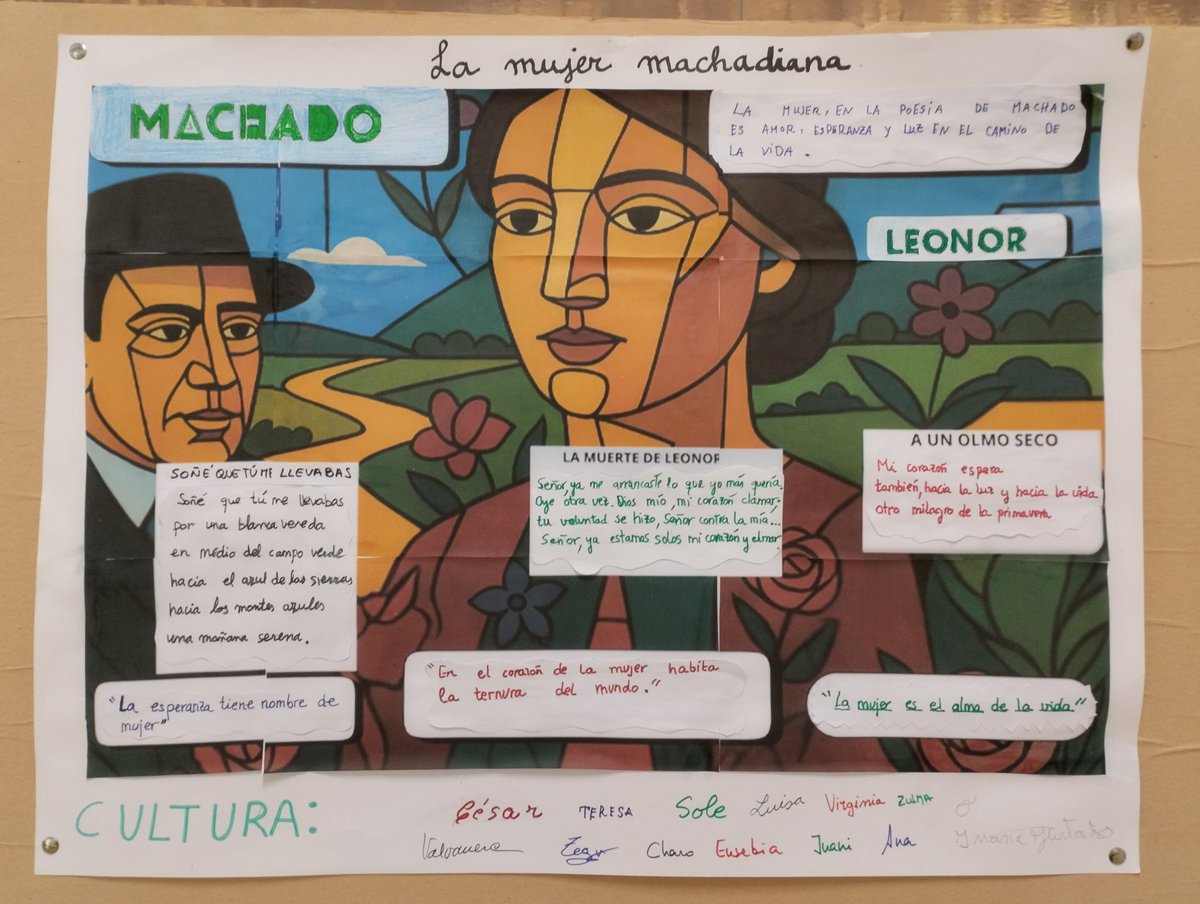 La mujer machadiana
MACHADO
LA MUJER, EN LA POESÍA DE MACHADO
ES AMOR, ESPERANZA Y LUZ EN EL CAMINO DE
LA VIDA.
LEONOR
SOÑÉ QUE TÚ ME LLEVABAS
Soñé que tú me llevabas
por una blanca vereda
en medio del campo verde
hacia el azul de las sierras
hacia los montes azules
una mañana serena.
LA MUERTE DE LEONOR
Señor, ya me arrancaste lo que yo más quería.
Oye otra vez, Dios mío, mi corazón clamar.
tu voluntad se hizo, Señor contra la mía...
Señor, ya estamos solos mi corazón y el mar.
A UN OLMO SECO
Mi corazón espera
también, hacia la luz y hacia la vida
otro milagro de la primavera
"La esperanza tiene nombre de
mujer"
"En el corazón de la mujer habita
la ternura del mundo."
"La mujer es el alma de la vida"
CULTURA:
César TERESA Sole Luisa Virginia ZULMA
Valvanera Charo Eusebia Juani Ana